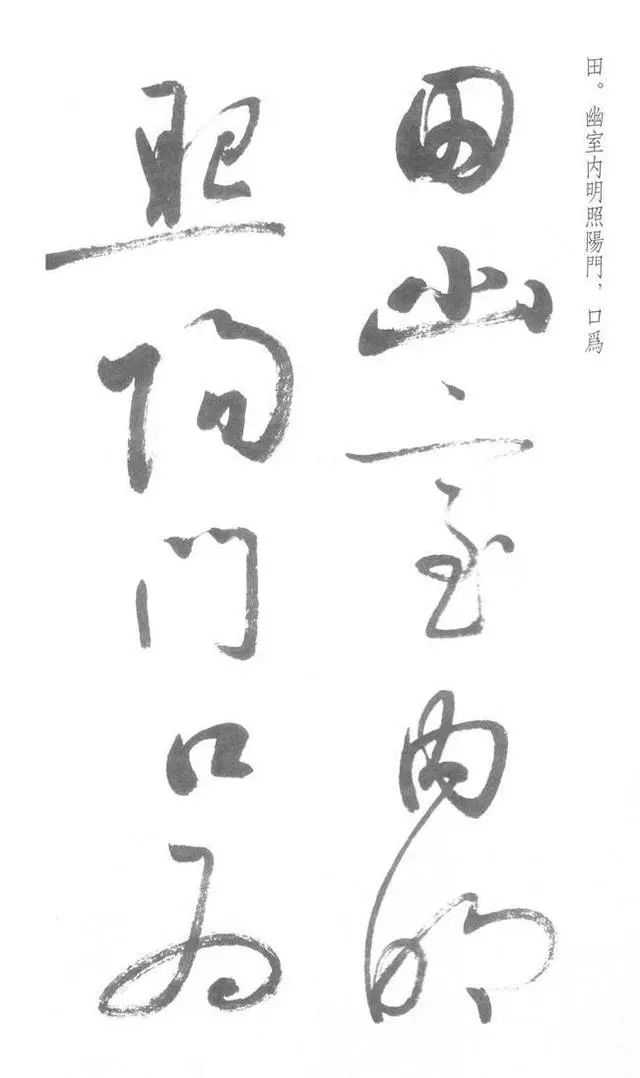 田。幽室内明照陽門,口爲
田幽室内明
照陽门口为